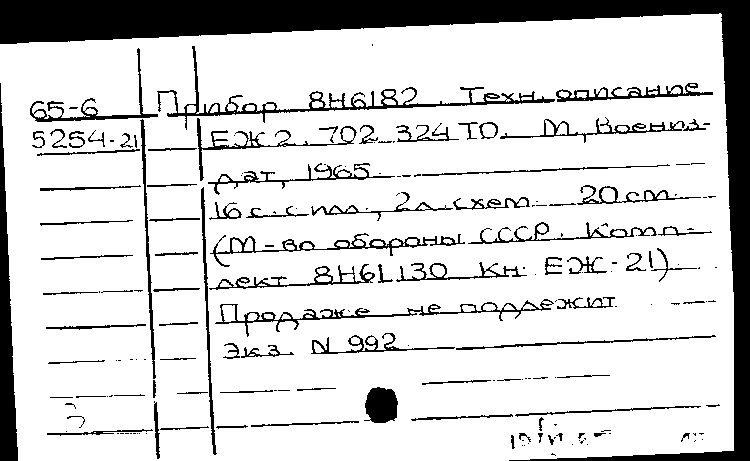 65-6 Прибор 8Н6182. Техн. описание
5254-21 ЕЖ2. 702 324 ТО. М., Воениз-
дат, 1965.
16 с. с илл., 2 л. схем. 20 см.
(М-во обороны СССР. Комп-
лект 8Н61130 Кн. ЕЖ-21).
Продаже не подлежит
Экз. N 992